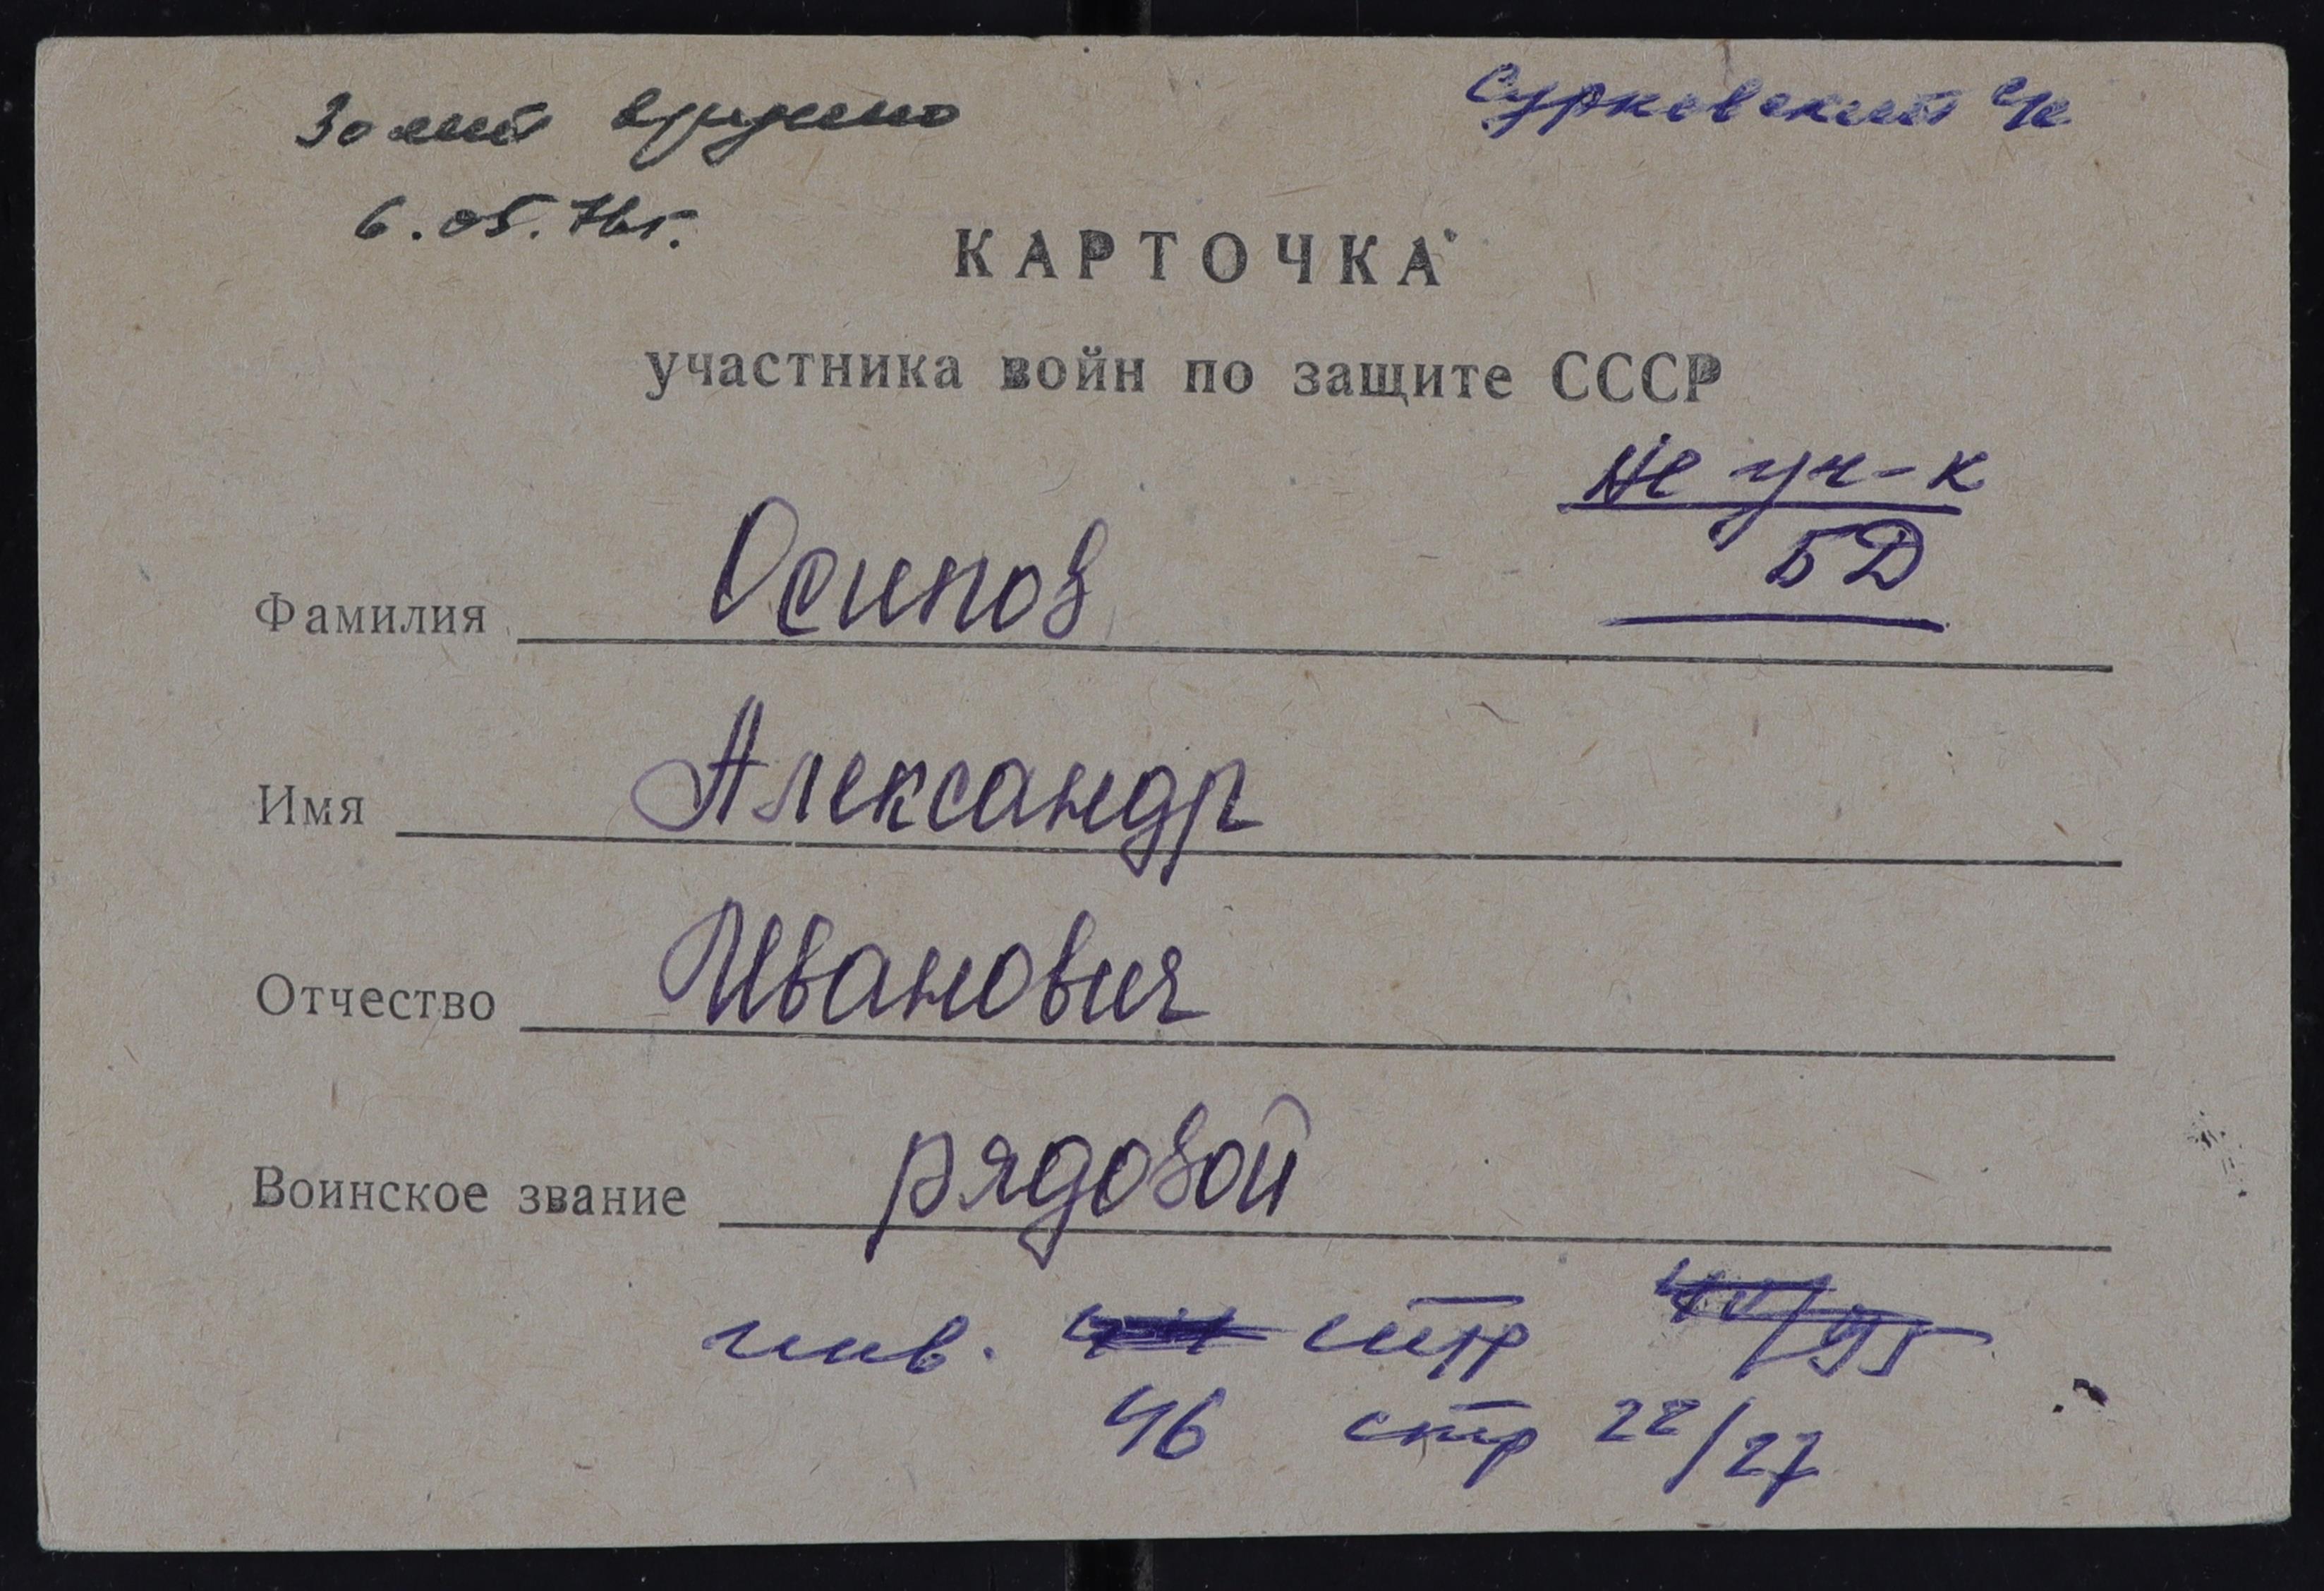 30 лет вручено
Сурковский ч/с
6.05.76г.
КАРТОЧКА
участника войн по защите СССР
Не уч-к
БД
Фамилия Осипов
Имя Александр
Отчество Иванович
Воинское звание рядовой
инв. стр
46 стр 22/27